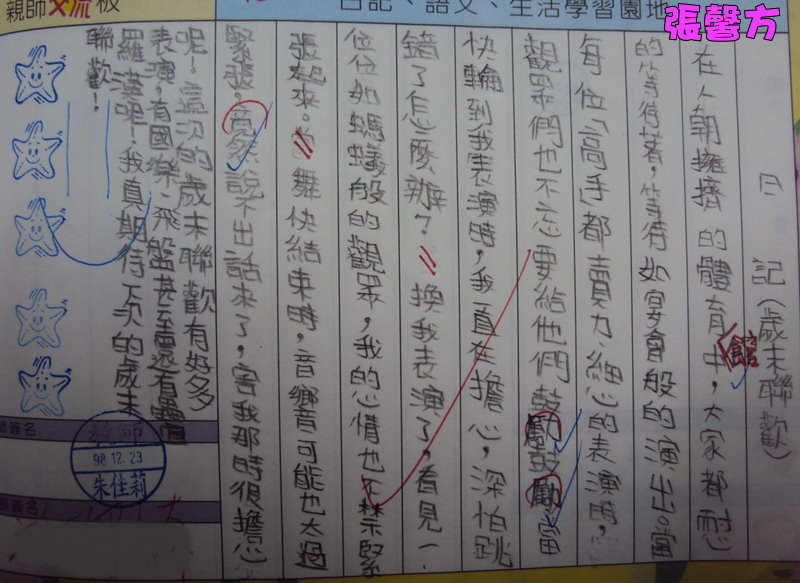 親師交流板
日記、語文、生活學習園地
張馨方
日記(歲末聯歡)
在人朝擁擠的體育館中,大家都耐
的等待著,等待如宴會般的演出。當
每位「高手」都賣力、細心的表演時,
觀眾們也不忘要給他們鼓勵鼓勵當
快輪到我表演時,我一直在擔心,深怕跳
錯了怎麼辦?換我表演了,看見一
位位如螞蟻般的觀眾,我的心情也不禁緊
張起來。舞快結束時,音響可能也太過
緊張,竟然說不出話來了,害我那時很擔心
呢!這次的歲末聯歡有好多
表演,有國樂、飛盤甚至還有疊
羅漢呢!我真期待下次的歲末
聯歡!
教師
98.12.23
朱佳莉